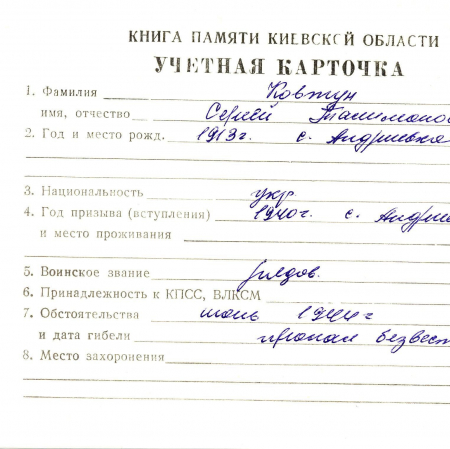 КНИГА ПАМЯТИ КИЕВСКОЙ ОБЛАСТИ
УЧЕТНАЯ КАРТОЧКА
1. Фамилия Ковтун
имя, отчество Сергей
2. Год и место рожд. 1913г. с. Андриевка
3. Национальность укр
4. Год призыва (вступления) 1940г. с. Андрие
и место проживания
5. Воинское звание рядов.
6. Принадлежность к КПСС, ВЛКСМ
7. Обстоятельства 1944г
и дата гибели пропал безвест
8. Место захоронения